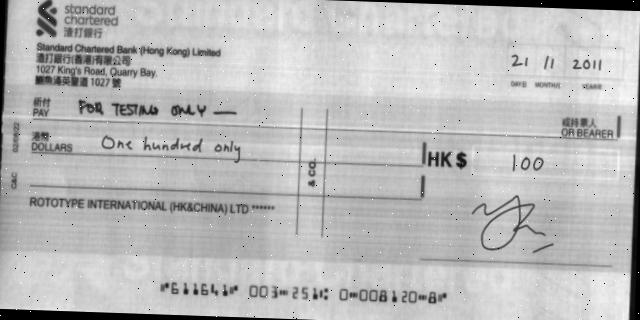 standard
chartered
渣打銀行
Standard Chartered Bank (Hong Kong) Limited
渣打銀行(香港)有限公司
1027 King's Road, Quarry Bay,
鰂魚涌英皇道 1027 號
21 11 2011
DAY日 MONTH月 YEAR年
祈付
PAY FOR TESTING ONLY —
或持票人
OR BEARER
港幣
DOLLARS One hundred only
HK $ 100
& CO.
C&C
ROTOTYPE INTERNATIONAL (HK&CHINA) LTD ******
⑈611641⑈ 003⑉251⑆ 0⑉008120⑉8⑈